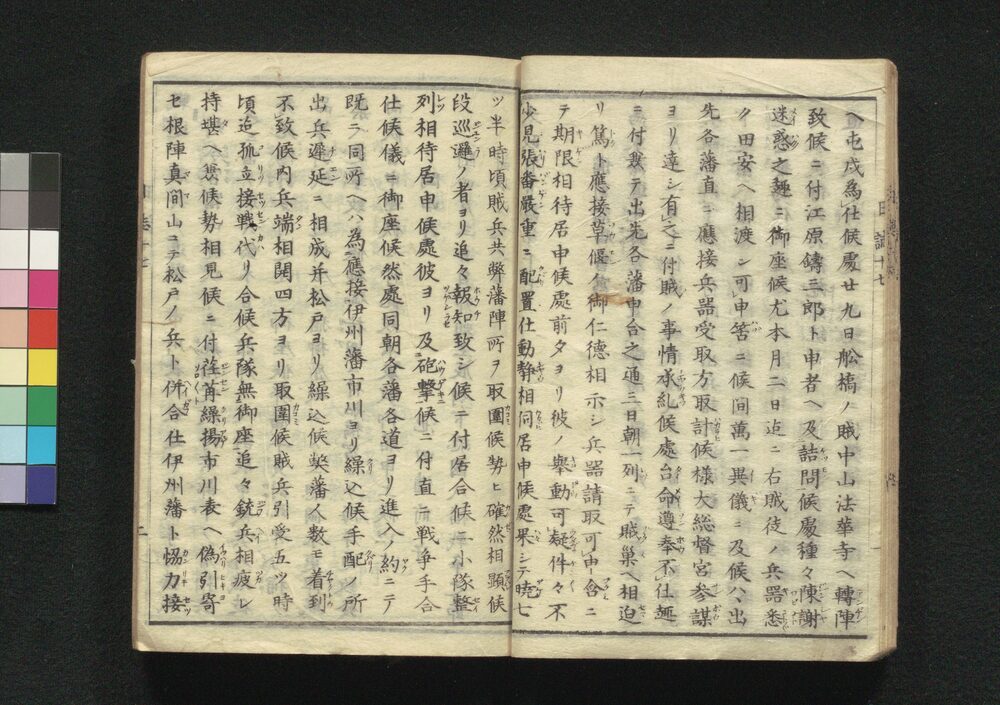 ヘ屯戍為仕候處廿九日舩橋ノ賊中山法華寺ヘ轉陣
致候ニ付江原鑄三郎ト申者ヘ及詰問候處種々陳謝
迷惑之趣ニ御座候尤本月二日迠ニ右賊徒ノ兵器悉
ク田安ヘ相渡シ可申筈ニ候間萬一異儀ニ及候ハヽ出
先各藩直ニ應接兵器受取方取計候様大総督宮参謀
ヨリ達シ有之ニ付賊ノ事情承糺候處台命遵奉不仕趣
ニ付兼テ出先各藩申合之通三日朝一列ニテ賊巣ヘ相迫
リ篤ト應接草偃御仁徳相示シ兵器請取可申含ニ
テ期限相待居申候處前夕ヨリ彼ノ舉動可疑件々不
少見張番嚴重ニ配置仕動静相伺居申候處果シテ暁七
ツ半時頃賊兵共弊藩陣所ヲ取圍候勢ヒ確然相顕候
段巡邏ノ者ヨリ追々報知致シ候ニ付居合候一小隊整
列相待居申候處彼ヨリ及砲撃候ニ付直ニ戦争手合
仕候儀ニ御座候然處同朝各藩各道ヨリ進入ノ約ニテ
既ニ同所ヘハ為應接伊州藩市川ヨリ繰込候手配ノ所
出兵遅延ニ相成并松戸ヨリ繰込候弊藩人数モ着到
不致候内兵端相開四方ヨリ取圍候賊兵引受五ツ時
頃迠孤立接戦代リ合候兵隊無御座追々銃兵相疲レ
持堪ヘ候勢相見候ニ付荏苒繰揚市川表ヘ偽引寄
セ根陣真間山ニテ松戸ノ兵ト併合仕伊州藩ト恊力接
日誌十七